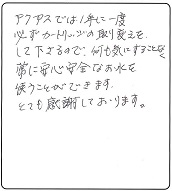 アクアスでは1年に一度
必ずカートリッジの取り変えを
して下さるので、何も気にすることなく
常に安心安全なお水を
使うことができます。
とても感謝しております。